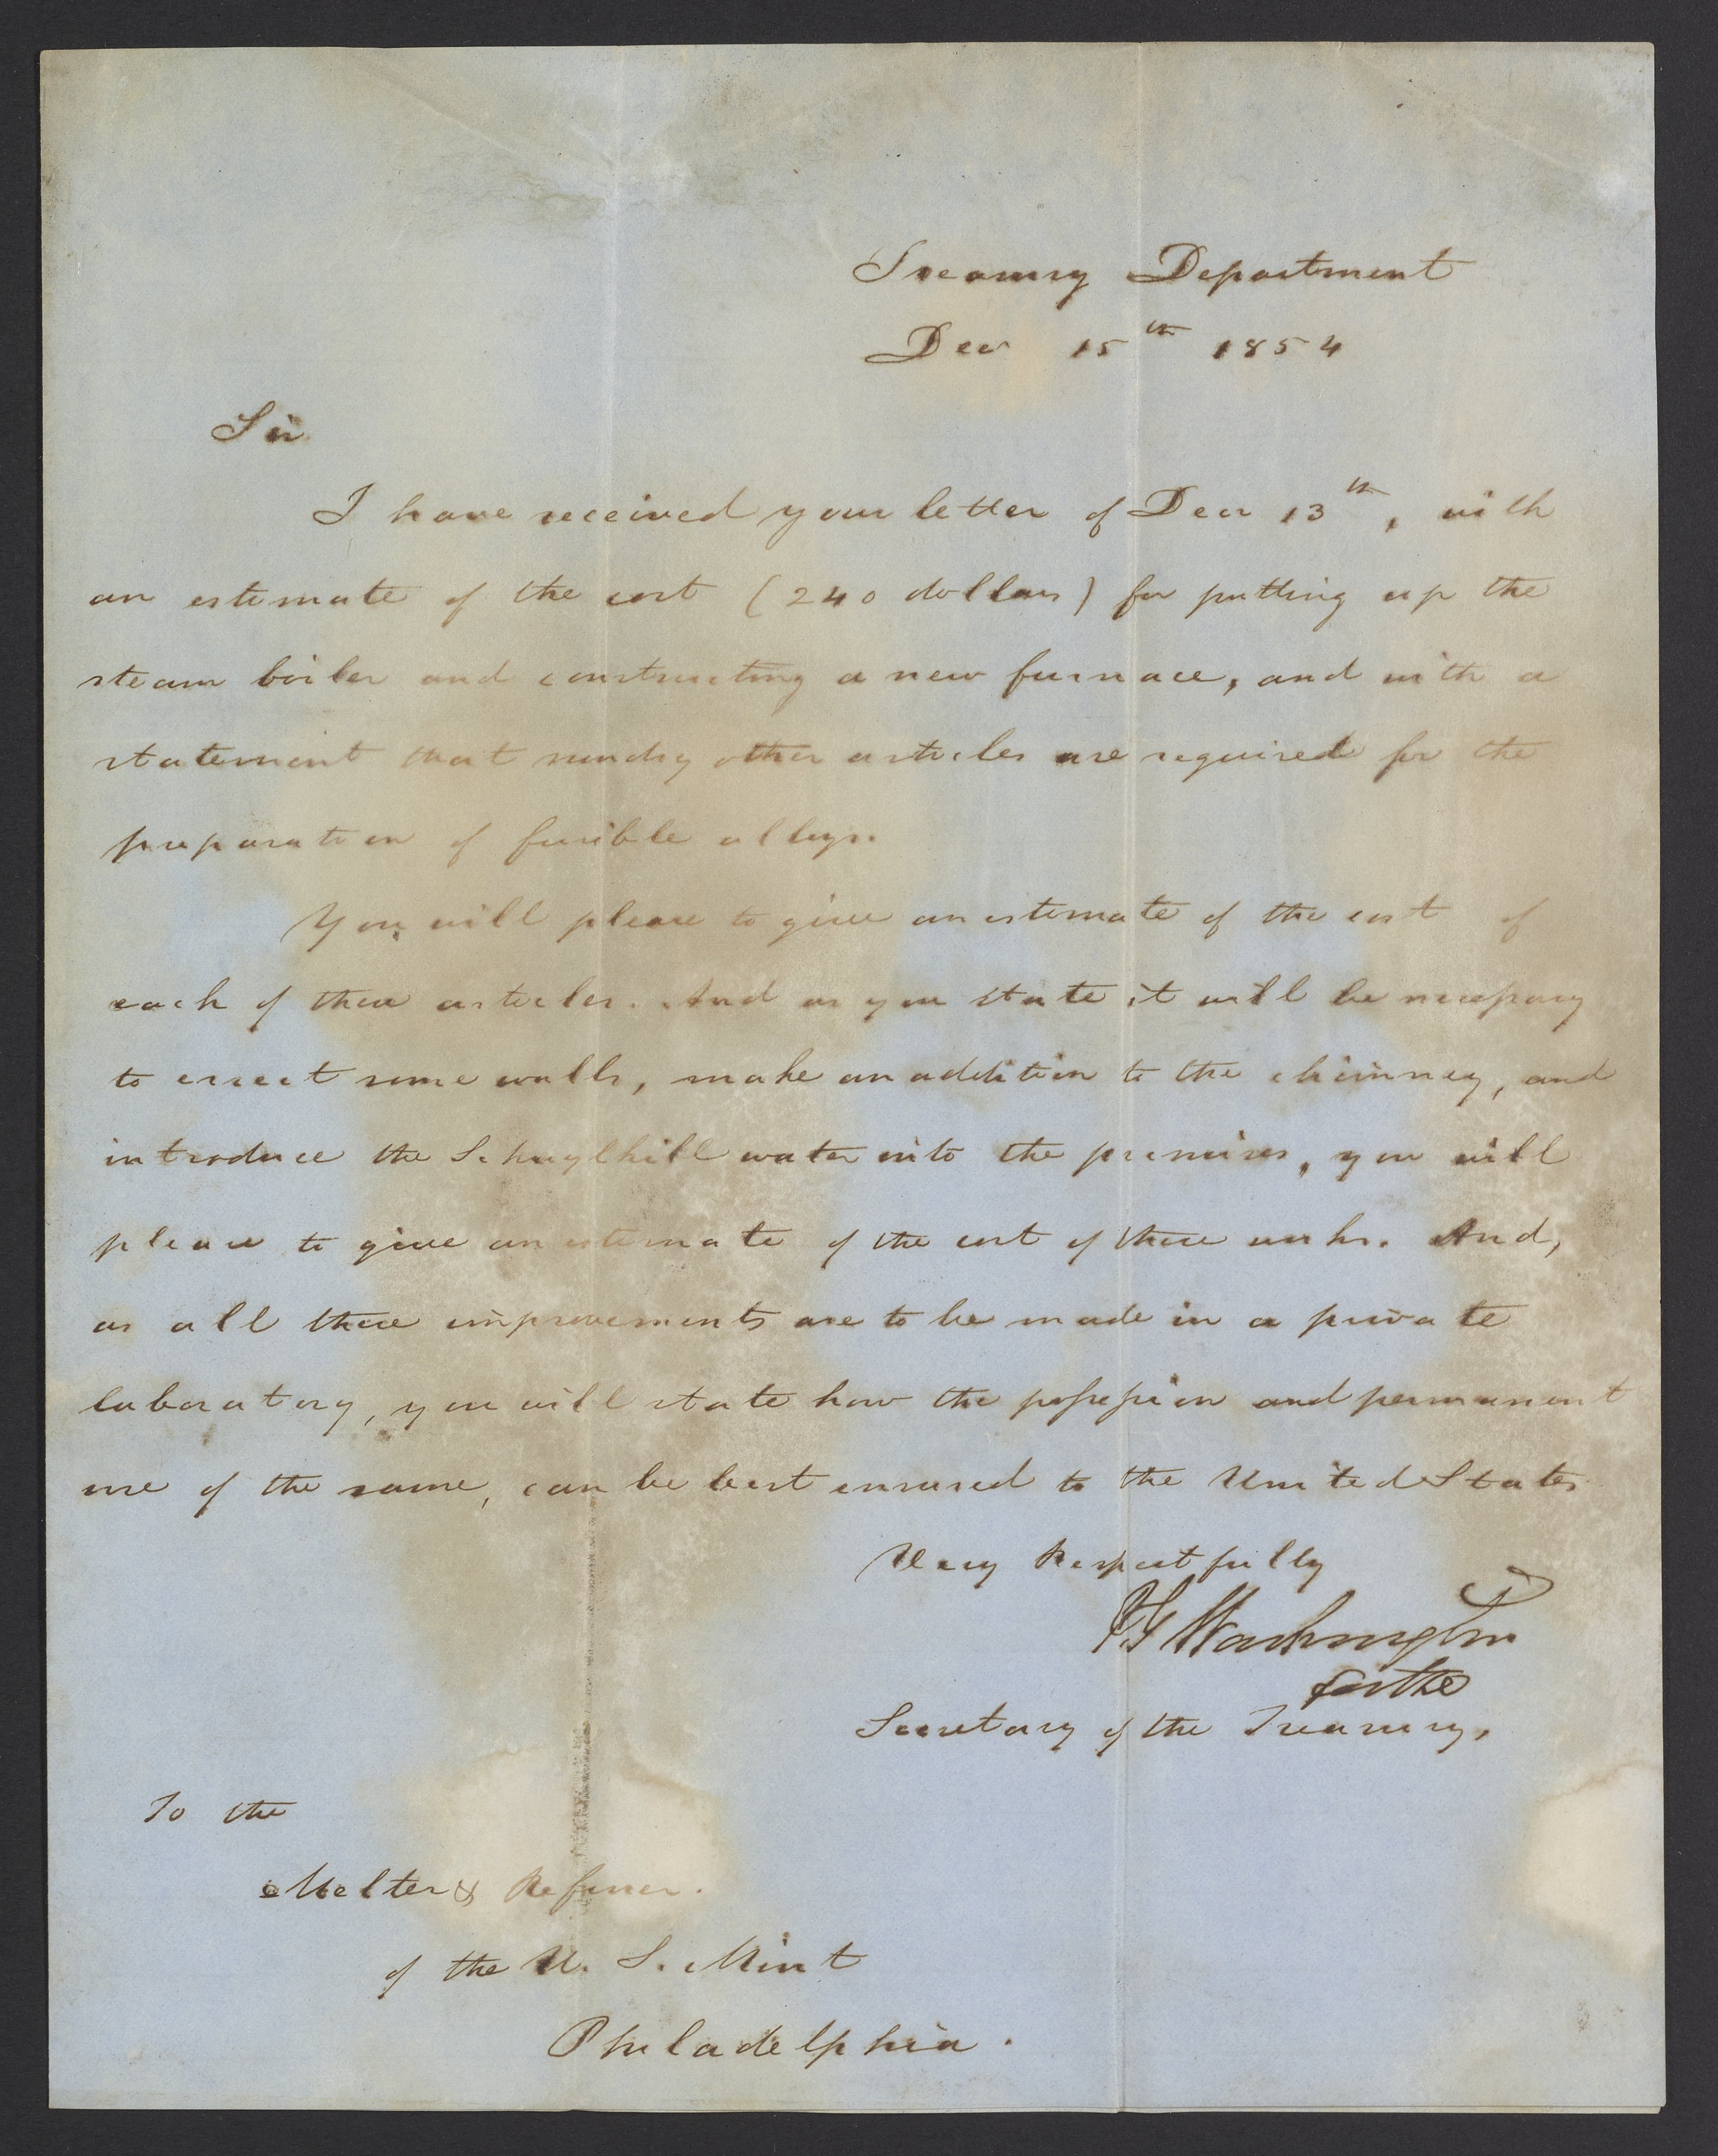 Treasury Department
Decr 15th 1854
Sir
I have received your letter of Decr 13th, with
an estimate of the cost (240 dollars) for putting up the
steam boiler and constructing a new furnace, and with a
statement that sundry other articles are required for the
preparation of fusible alloys.
You will please to give an estimate of the cost of
each of these articles. And as you state it will be necessary
to erect some walls, make an addition to the chimney, and
introduce the Schuylkill water into the premises, you will
please to give an estimate of the cost of these works. And,
as all these improvements are to be made in a private
laboratory, you will state how the possession and permanent
use of the same, can be best ensured to the United States
Very Respectfully
P G Washington
for the
Secretary of the Treasury,
To the
Melter & Refiner.
of the U. S. Mint
Philadelphia.